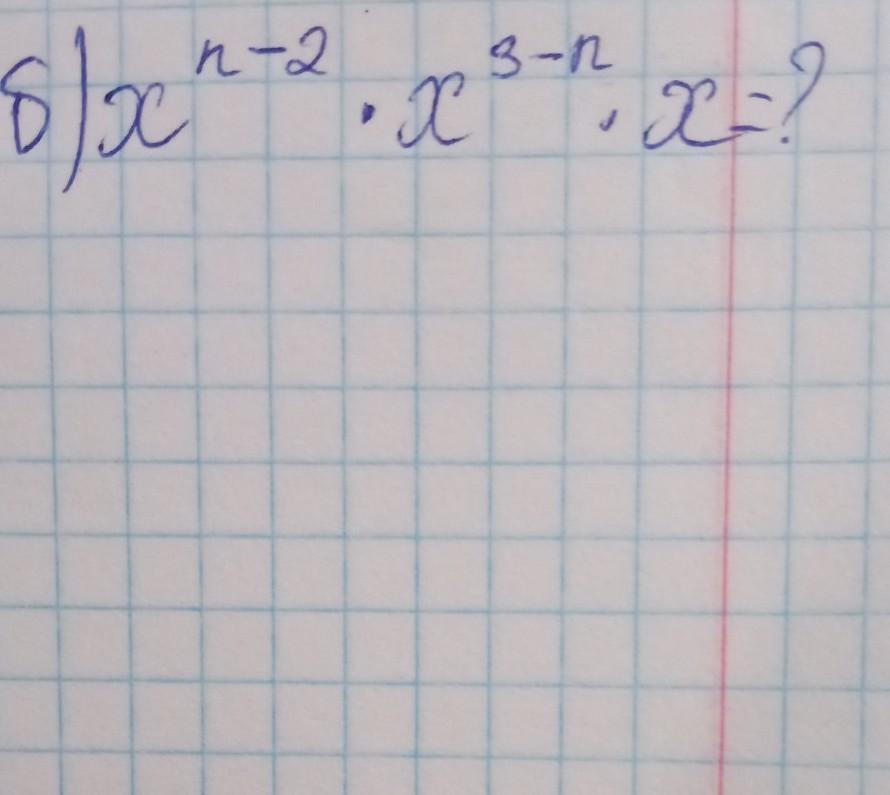 б) x^{n-2} · x^{3-n} · x = ?